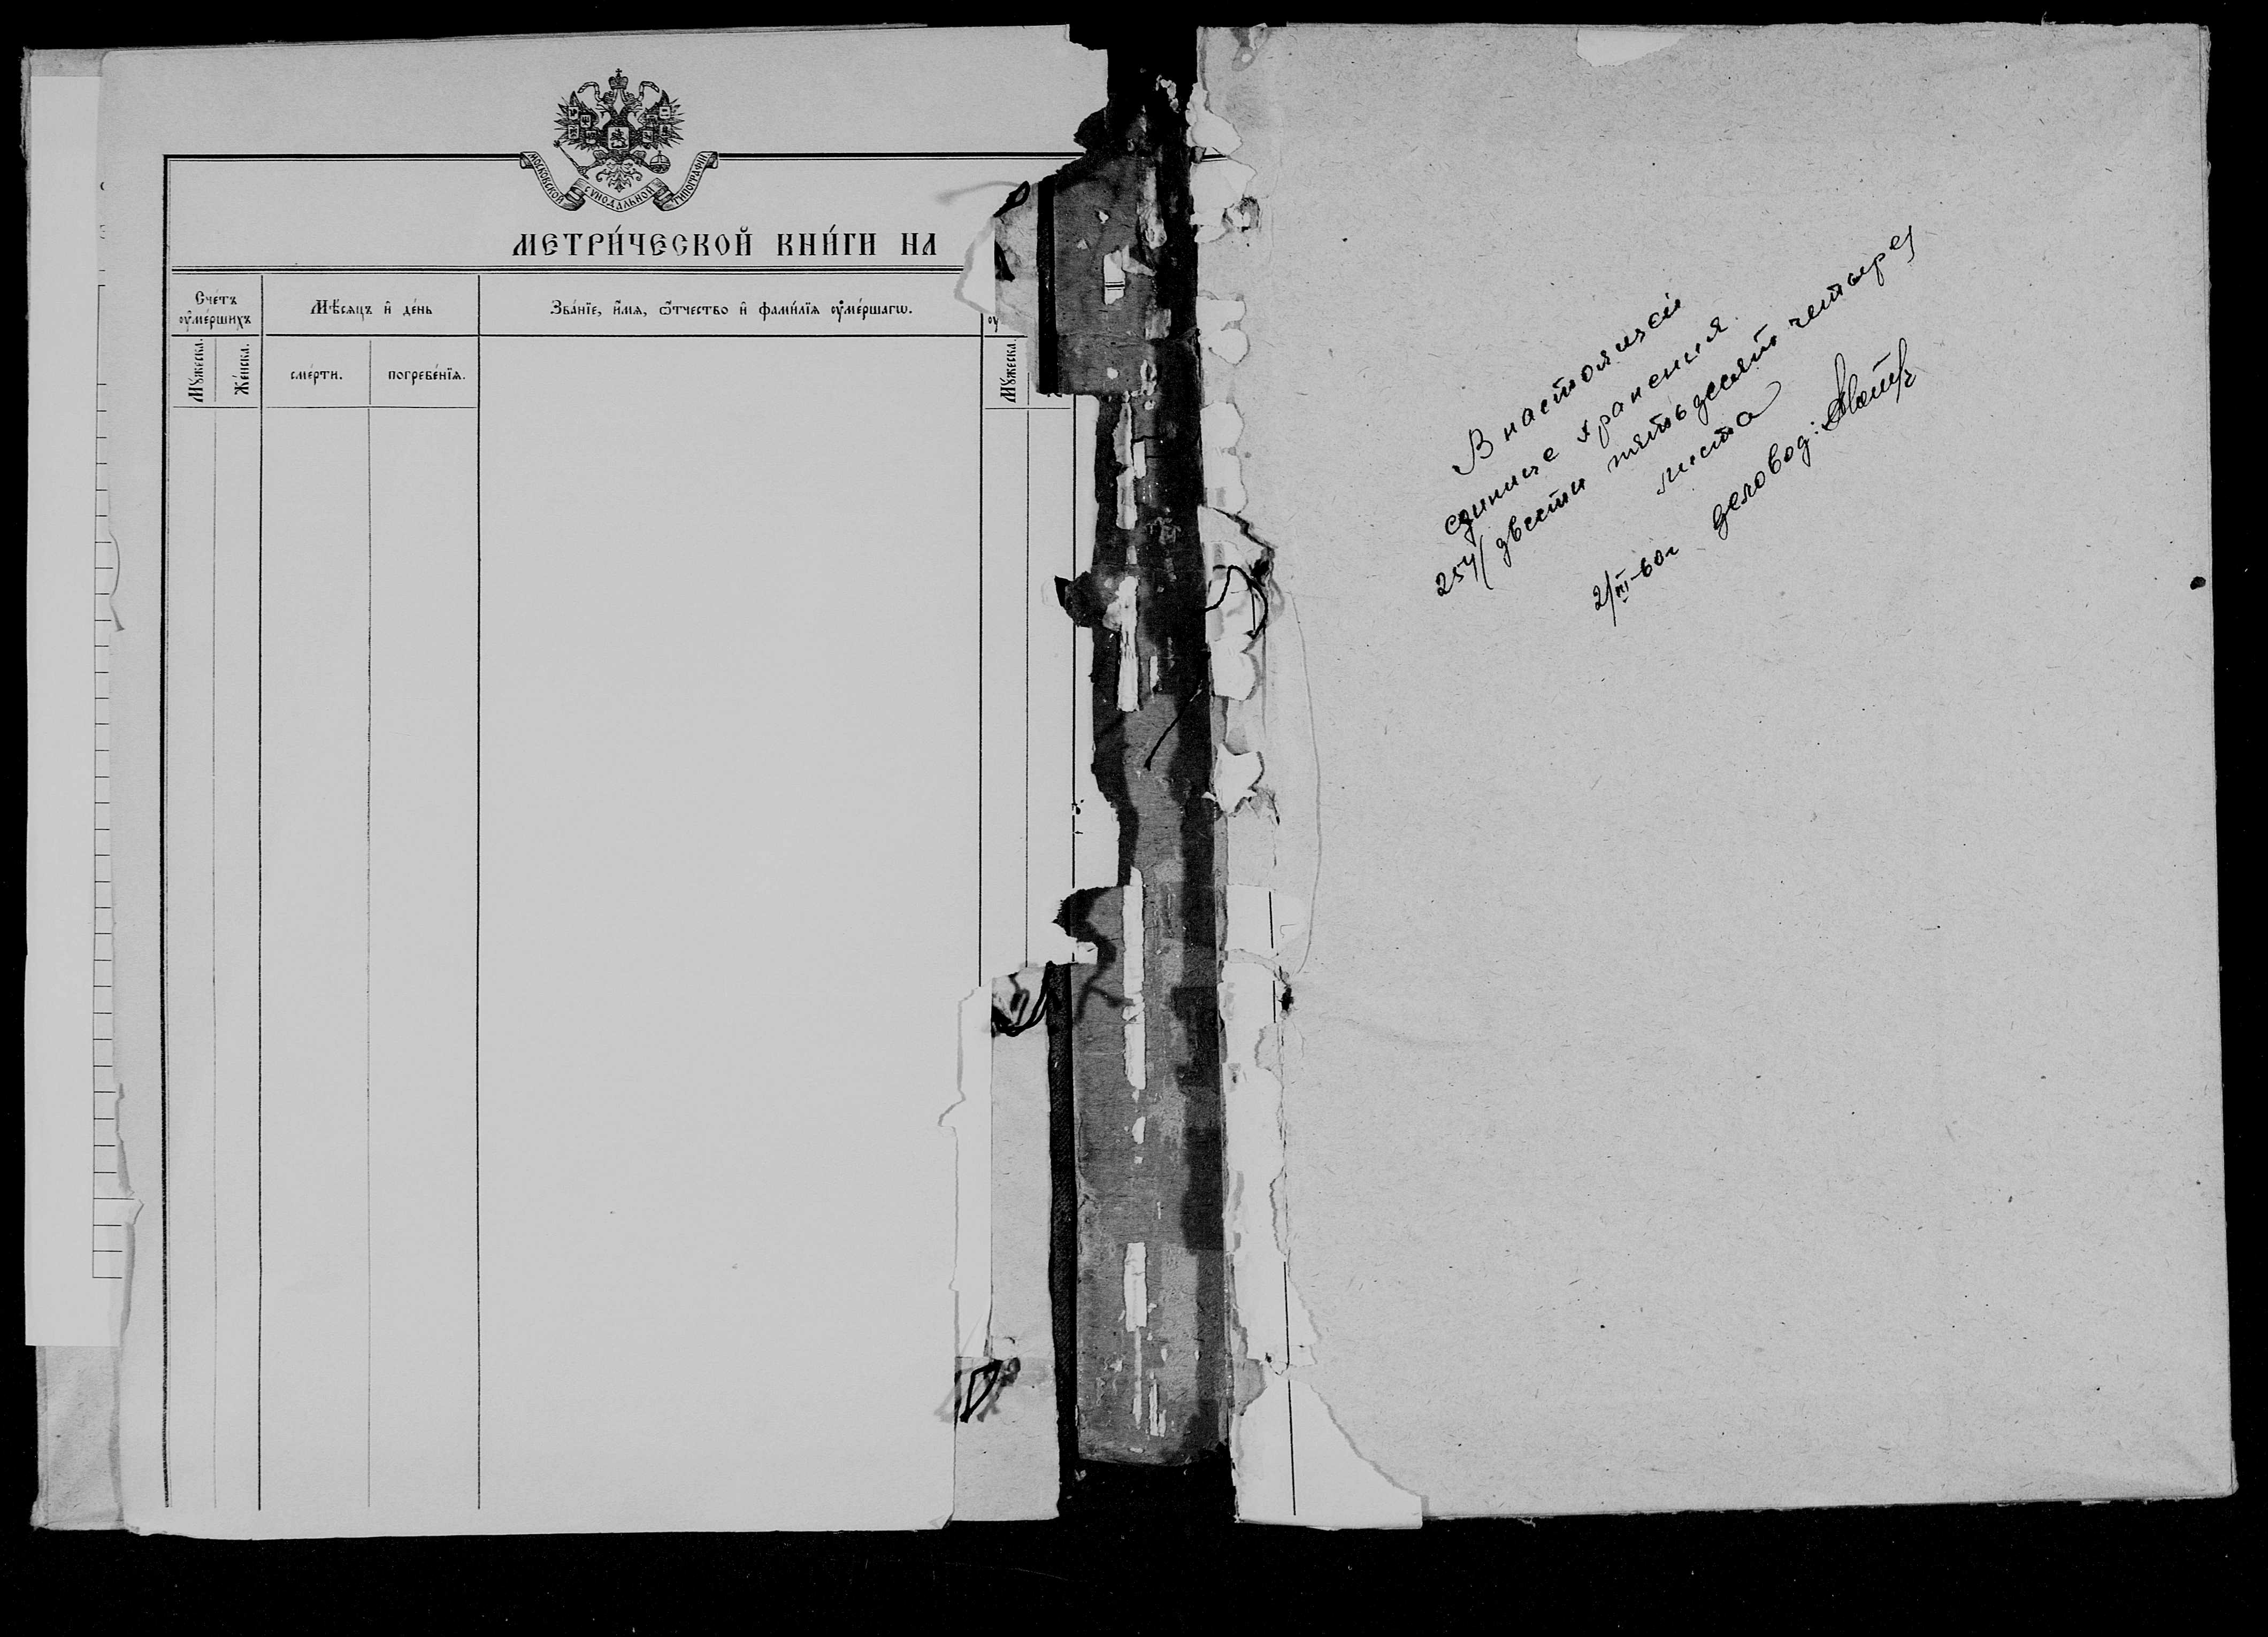 МОСКОВСКОЙ СѴНОДАЛЬНОЙ ТИПОГРАФІИ
МЕТРИ́ЧЕСКОЙ КНИ́ГИ НА
Сче́тъ ᲂу҆ме́ршихъ
Мѣ́сѧцъ и҆ де́нь
Зва́нїе, и҆́мѧ, ѻ҆́тчество и҆ фами́лїѧ ᲂу҆ме́ршагѡ.
ᲂу
Мꙋ́жеска.
Же́нска.
сме́рти.
погребе́нїѧ.
Мꙋ́жеска.
В настоящей
единице хранения
254/ двести пятьдесят четыре/
листа
2/III-60г деловод: